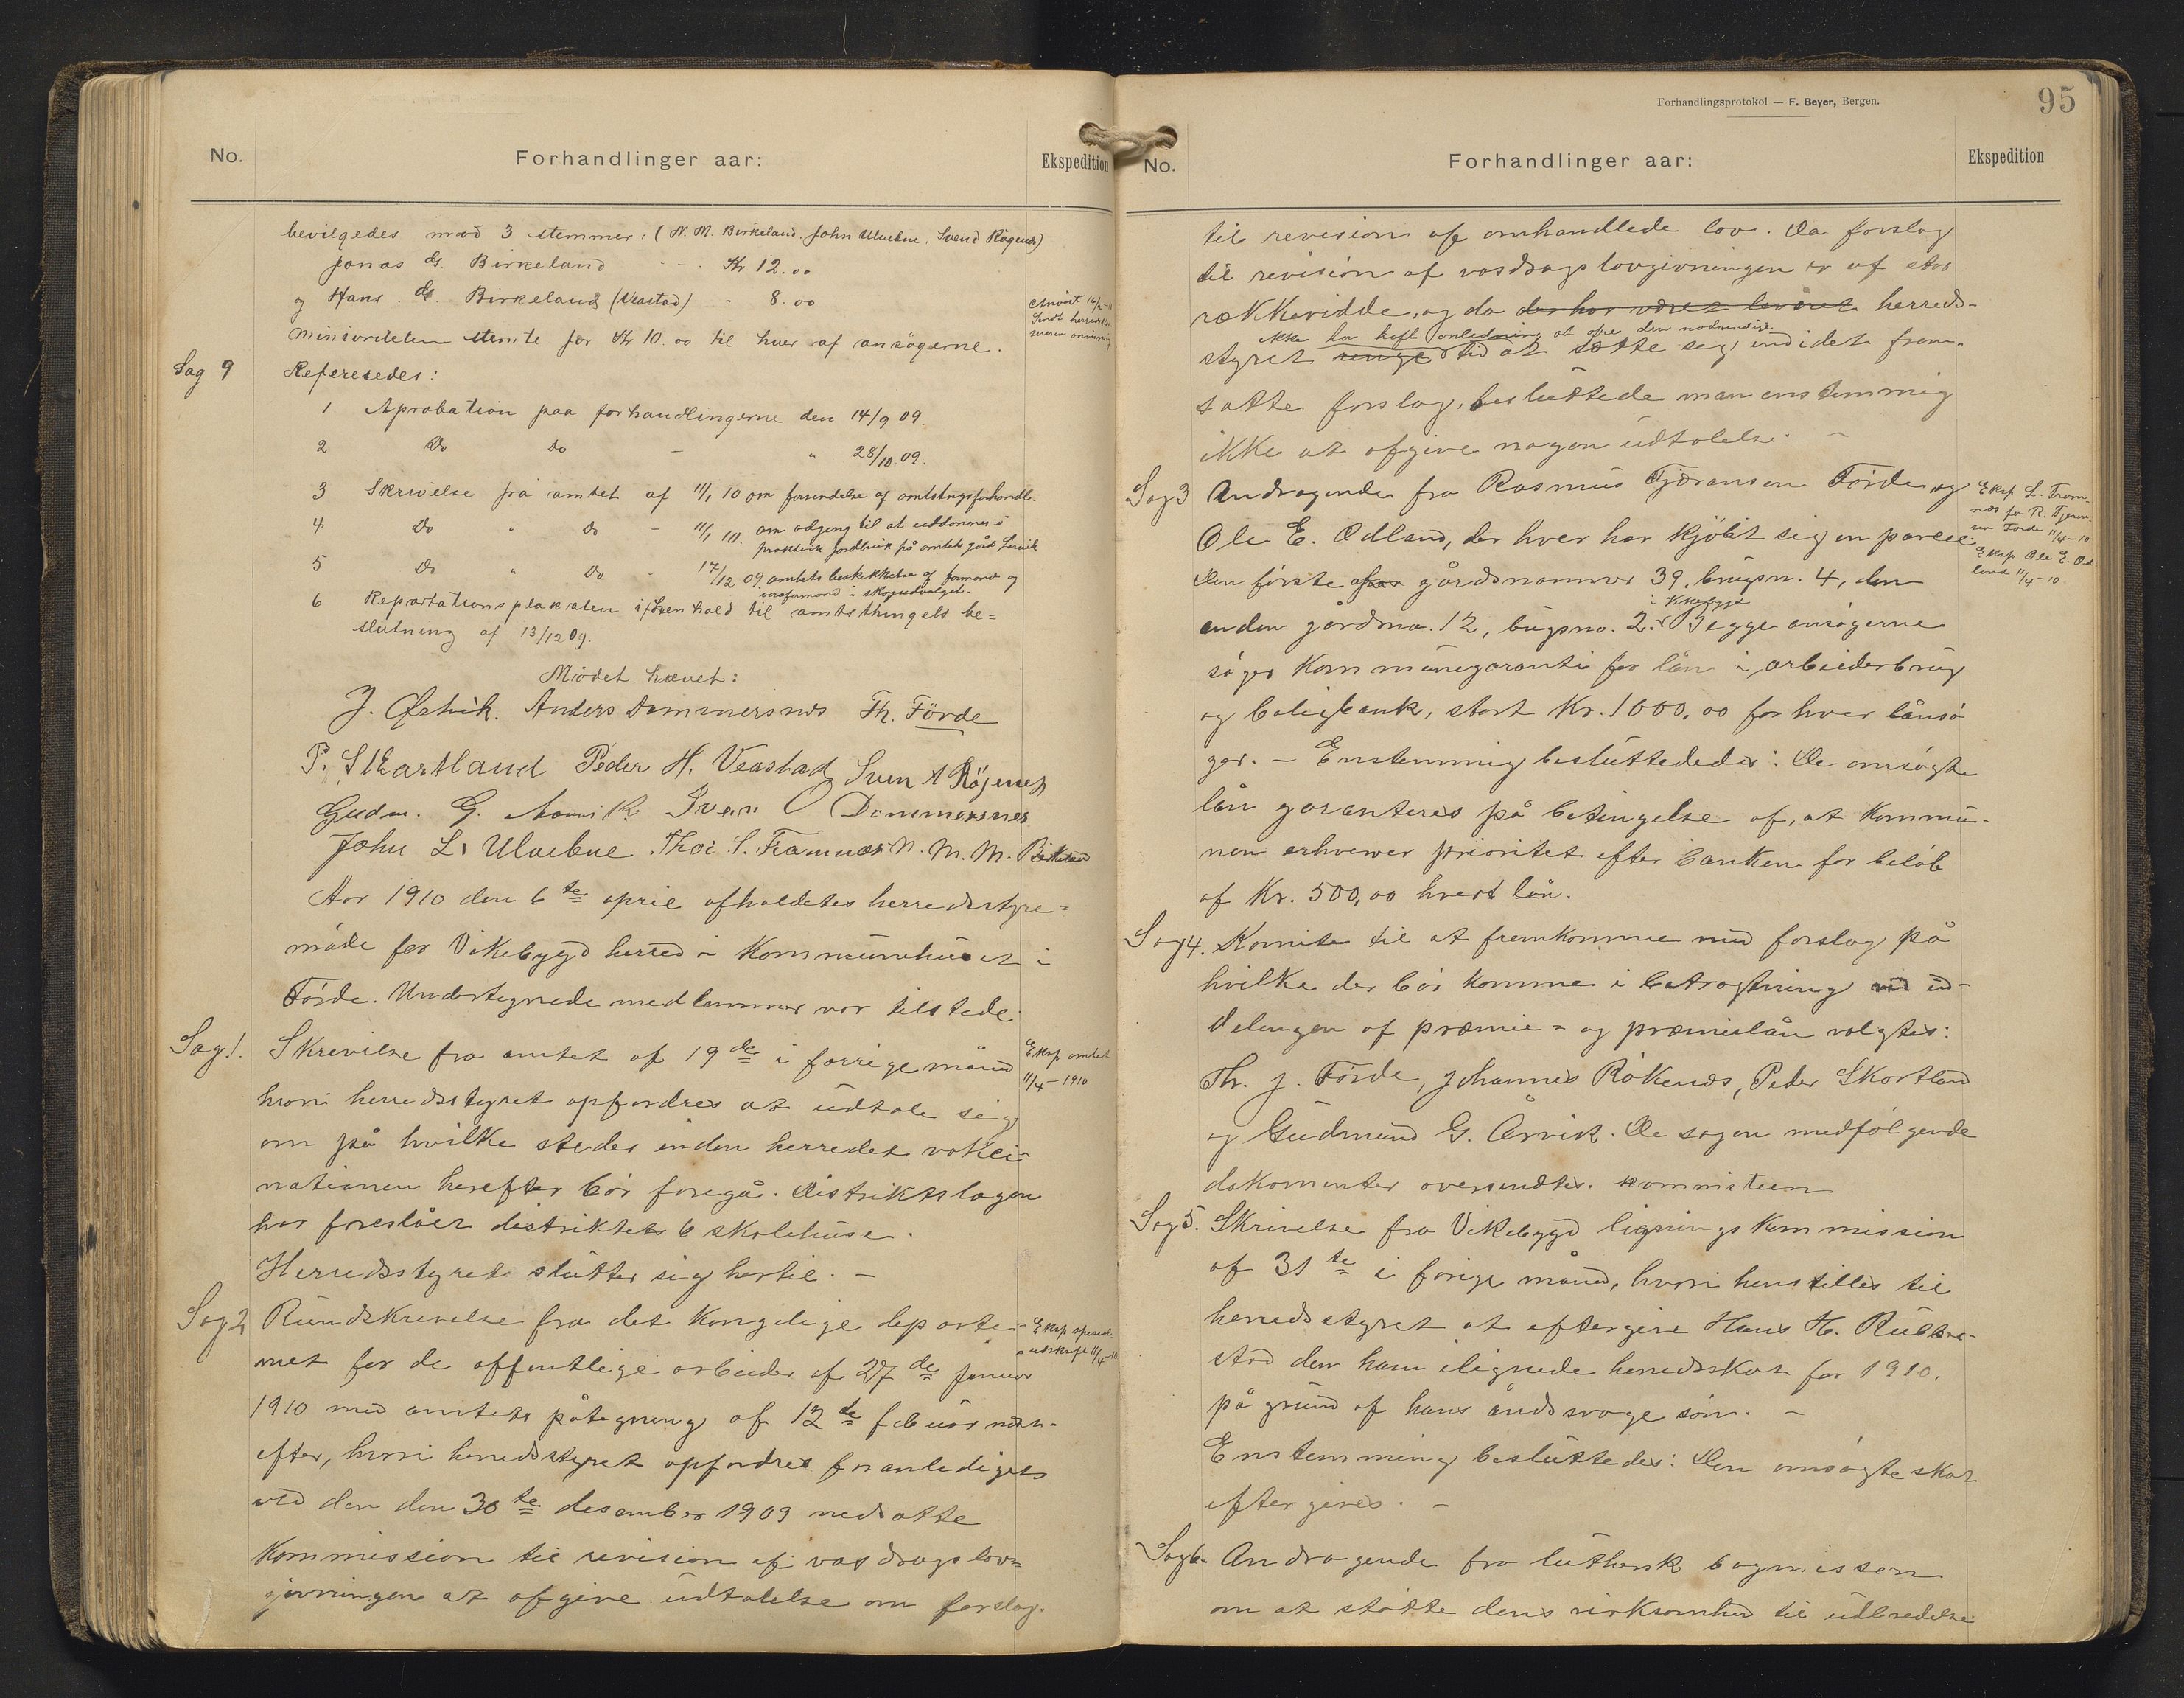 No.
Forhandlinger aar:
Ekspedition
bevilgedes mod 3 stemmer: (N. M. Birkeland, John Ulvebne, Svend Røgenes)
Jonas G. Birkeland - - - Kr 12.00
og Hans G. Birkeland (Veastad) - 8.00
Minioriteten stemte for Kr 10.00 til hver af ansøgerne.
Sag 9 Refereredes:
1 Aprobation paa forhandlingerne den 14/9 09.
2 Do Do - " 28/10 09.
3 Skrivelse fra amtet af 11/1 10 om forsendelse af amtstingsforhandl.
4 Do " Do - 11/1 10. om adgang til at uddannes i
praktisk jordbruk på amtets gård
5 Do " Do - 17/12 09 amtets beskikkelse af formand og
varaformand i skogudvalget.
6 Repartationsplakaten i henhold til amtsthingets be=
slutning af 13/12 09.
Mødet hævet:
J. Østvik. Anders Dommersnes Th. Förde
P. Skartland Peder H. Veastad Sven A Röjenes
Gudm. G. Aarvik Iver O Dommersnes
John L. Ulvebne Thor S. Framnæs N. M. M. Birkeland
Aar 1910 den 6te april afholdtes herredsstyre=
møde for Vikebygd herred i Kommunehuset i
Førde. Undertegnede medlemmer var tilstede
Sag 1. Skrivelse fra amtet af 19de i forrige måned
Eksp amtet
11/4-1910
hvori herredsstyret opfordres at udtale sig
om på hvilke steder inden herredet vakci-
nationen herefter bør foregå. Distriktslægen
har foreslået distriktets 6 skolehuse.
Herredsstyret slutter sig hertil. -
Sag 2 Rundskrivelse fra det kongelige departe=
Eksp
udskrift 11/4-10
met for de offentlige arbeider af 27de januar
1910 med amtets påtegning af 12te februar næst-
efter, hvori herredsstyret opfordres foranlediget
ved den den 30te desember 1909 nedsatte
Kommission til revision af vasdragslov=
givningen at afgive udtalelse om forslag.
Forhandlingsprotokol — F. Beyer, Bergen.
95
No.
Forhandlinger aar:
Ekspedition
til revision af omhandlede lov. Da forslag
til revision af vasdragslovgivningen er af stor
rækkevidde, og da der har været levnet herreds-
ikke har haft anledning at ofre den nødvendige
styret ringe tid at sætte sig ind i det frem-
satte forslag, besluttede man enstemmig
ikke at afgive nogen udtalelse. -
Sag 3 Andragende fra Rasmus Tjøransen Førde og
Eksp L. Fram-
næs for R. Tjøran-
sen Førde 11/4-10
Ole E. Ødland, der hver har kjøbt sig en parcel.
Eksp Ole E. Ød-
land 11/4-10.
Den første gårdsnummer 39, brugsn. 4, den
i Vikebygd
anden gårdno. 12, brugsno. 2. Begge ansøgerne
søger Kommunegaranti for lån i arbeiderbrug
og boligbank, stort Kr. 1000,00 for hver lånsø
ger. - Enstemmig besluttededes: De ansøgte
lån garanteres på betingelse af, at Kommu-
nen erhverver prioritet efter banken for beløb
af Kr. 500,00 hvert lån.
Sag 4. Komite til at fremkomme med forslag på
hvilke der bør komme i betragtning ved ud-
delingen af præmie= og præmielån valgtes:
Th. J. Førde, Johannes Røkenes, Peder Skartland
og Gudmund G. Årvik. De sagen medfølgende
dokomenter oversendtes. kommiteen
Sag 5. Skrivelse fra Vikebygd lignings Kommission
af 31te i forige måned, hvori henstilles til
herredsstyret at eftergive Hans H. Rubbe-
stad den ham ilignede herredsskat for 1910,
på grund af hans åndssvage søn. -
Enstemmig besluttedes: Den ansøgte skat
eftergives. -
Sag 6. Andragende fra luthersk bogmission
om at støtte dens virksomhed til udbredelse